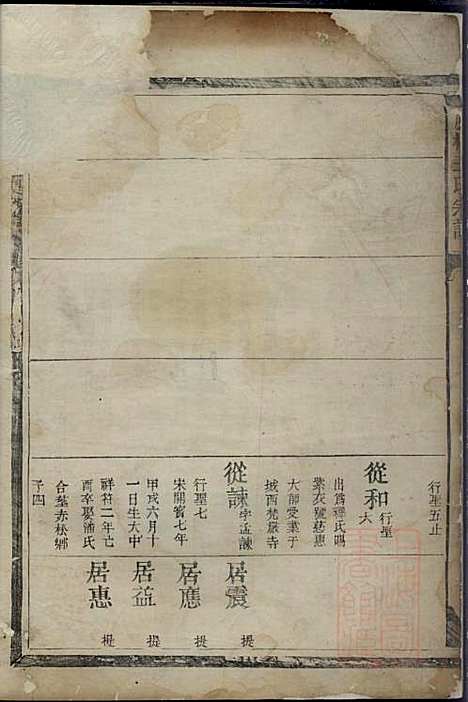 行聖五止
從和 行聖
六
出爲釋氏賜
紫衣號慈惠
大師受業于
城西梵嚴寺
從諫 字孟諫
行聖七
宋開寶七年
甲戌六月十
一日生大中
祥符二年己
酉卒娶潘氏
合塟赤松鄉
子四
居震 提
居應 提
居益 提
居惠 提
氏宗譜